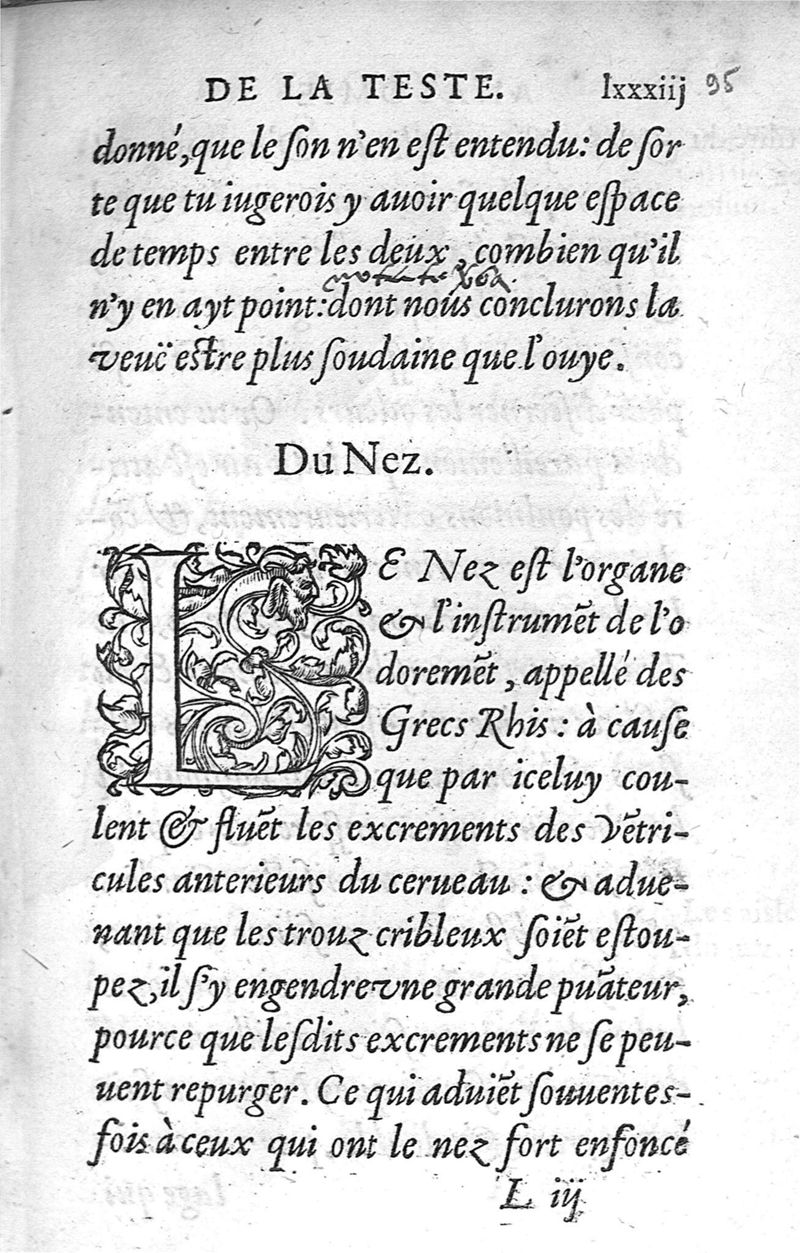 DE LA TESTE. lxxxiij 95
donné, que le ſon n'en eſt entendu: de ſor
te que tu iugerois y auoir quelque eſpace
de temps entre les deux, combien qu'il
n'y en ayt point: dont nous conclurons la
veuë eſtre plus ſoudaine que l'ouye.
Du Nez.
LE Nez eſt l'organe
& l'inſtrumēt de l'o
doremēt, appellé des
Grecs Rhis: à cauſe
que par iceluy cou-
lent & fluēt les excrements des Vētri-
cules anterieurs du cerueau: & adue-
nant que les trouz cribleux ſoiēt eſtou-
pez, il ſ'y engendre vne grande puāteur,
pource que leſdits excrements ne ſe peu-
uent repurger. Ce qui aduiēt ſouuentes-
fois à ceux qui ont le nez fort enfoncé
L iij